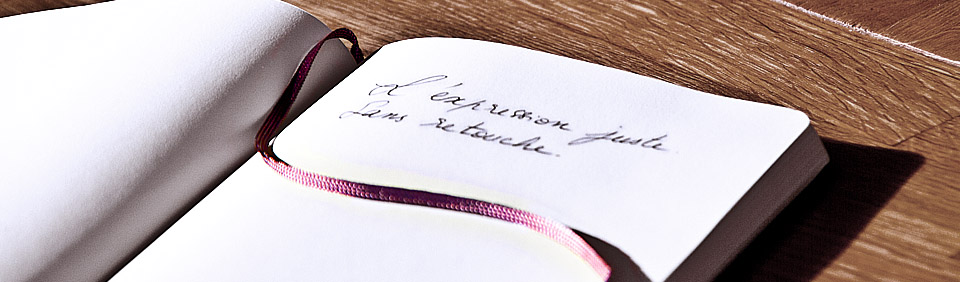 L'expression juste
Sans retouche.